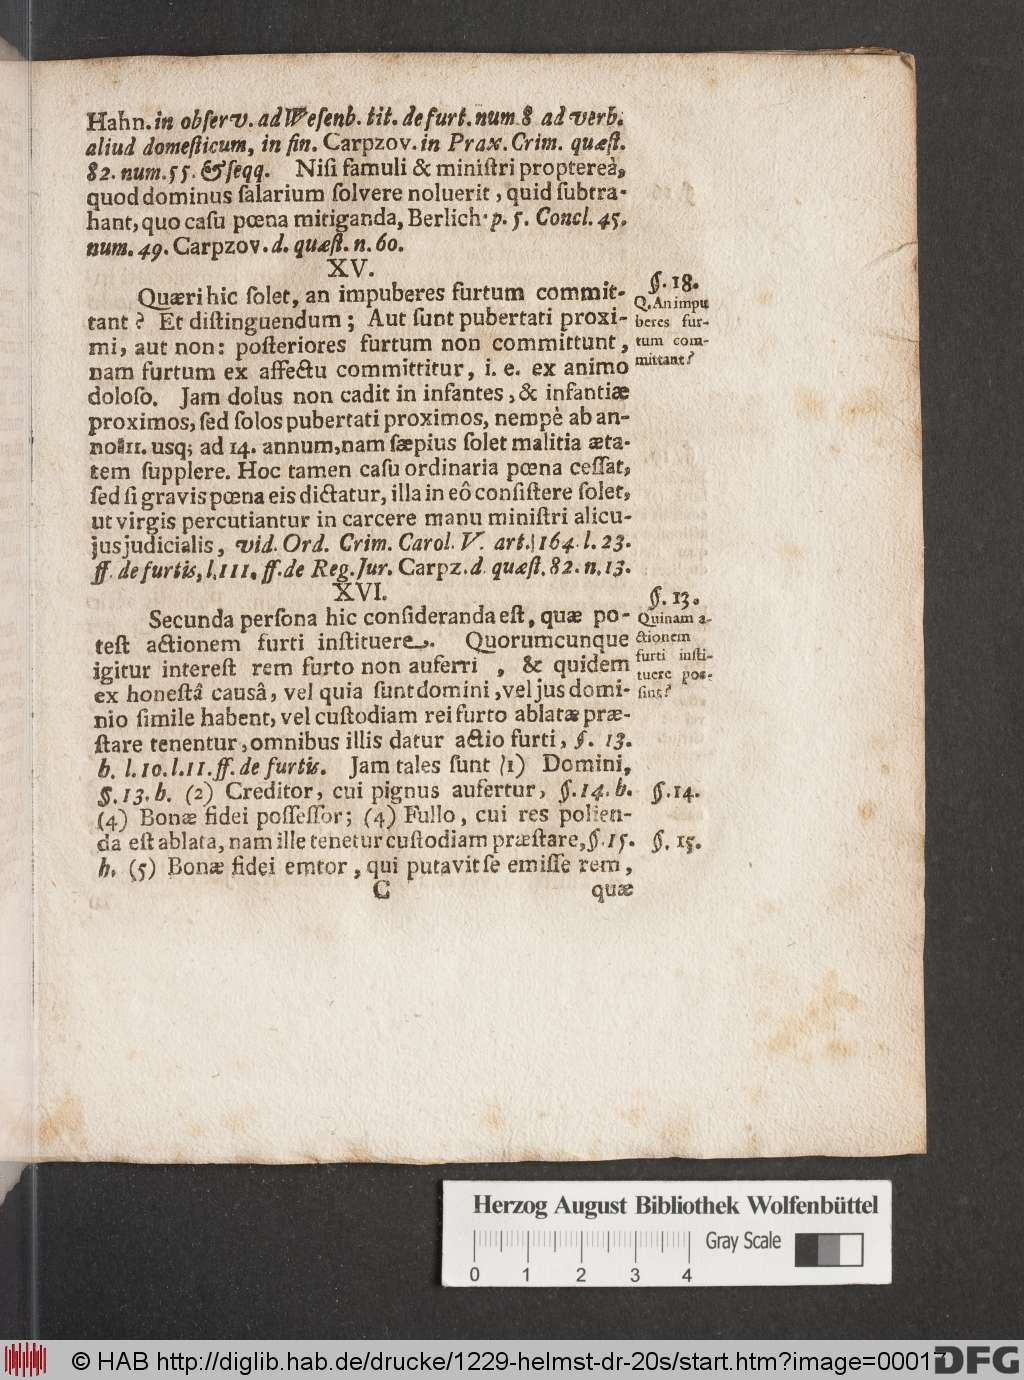 Hahn. in obſerv. ad Weſenb. tit. de furt. num 8 ad verb.
aliud domeſticum, in fin. Carpzov. in Prax. Crim. quæſt.
82. num. 55. & ſeqq. Niſi famuli & miniſtri propterea,
quod dominus ſalarium ſolvere noluerit, quid ſubtra-
hant, quo caſu pœna mitiganda, Berlich. p. 5. Concl. 45.
num. 49. Carpzov. d. quæſt. n. 60.
XV.
Quæri hic ſolet, an impuberes furtum commit-
tant? Et diſtinguendum; Aut ſunt pubertati proxi-
mi, aut non: poſteriores furtum non committunt,
nam furtum ex affectu committitur, i. e. ex animo
doloſo. Jam dolus non cadit in infantes, & infantiæ
proximos, ſed ſolos pubertati proximos, nempè ab an-
no 11. usq; ad 14. annum, nam ſæpius ſolet malitia æta-
tem ſupplere. Hoc tamen caſu ordinaria pœna ceſſat,
ſed ſi gravis pœna eis dictatur, illa in eô conſiſtere ſolet,
ut virgis percutiantur in carcere manu miniſtri alicu-
jus judicialis, vid. Ord. Crim. Carol. V. art. 164. l. 23.
ff. de furtis, l. 111. ff. de Reg. Jur. Carpz. d. quæſt. 82. n. 13.
§. 18.
Q. An impu
beres fur-
tum com-
mittant?
XVI.
Secunda perſona hic conſideranda eſt, quæ po-
teſt actionem furti inſtituere. Quorumcunque
igitur intereſt rem furto non auferri, & quidem
ex honeſtâ causâ, vel quia ſunt domini, vel jus domi-
nio ſimile habent, vel cuſtodiam rei furto ablatæ præ-
ſtare tenentur, omnibus illis datur actio furti, §. 13.
h. l. 10. l. 11. ff. de furtis. Jam tales ſunt (1) Domini,
§. 13. h. (2) Creditor, cui pignus aufertur, §. 14. h.
(4) Bonæ fidei poſſeſſor; (4) Fullo, cui res polien-
da eſt ablata, nam ille tenetur cuſtodiam præſtare, §. 15.
h. (5) Bonæ fidei emtor, qui putavit ſe emiſſe rem,
§. 13.
Quinam a-
ctionem
furti inſti-
tuere poſ-
ſint?
§. 14.
§. 15.
C
quæ
Herzog August Bibliothek Wolfenbüttel
Gray Scale
0 1 2 3 4
© HAB http://diglib.hab.de/drucke/1229-helmst-dr-20s/start.htm?image=00017
DFG